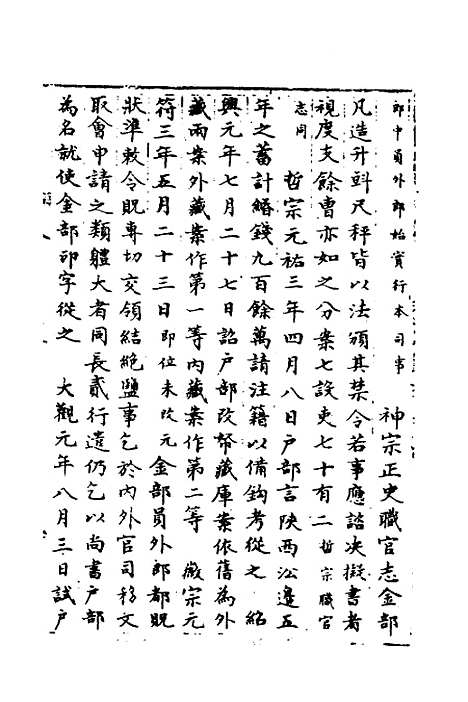 郎中員外郎始實行本司事　神宗正史職官志金部
凡造升㪷尺秤皆以法頒其禁令若事應諮决擬書者
視度支餘曹亦如之分案七設吏七十有二哲宗職官
志同　哲宗元祐三年四月八日户部言陜西㳂邊五
年之蓄計緡錢九百餘萬請注籍以備鈎考從之　紹
興元年七月二十七日詔户部改帑藏庫案依舊為外
藏兩案外藏案作第一等内藏案作第二等　徽宗元
符三年五月二十三日即位未改元金部員外郎都貺
狀準敕令貺專切交領結絶鹽事乞於内外官司移文
取會申請之類體大者同長貳行遣仍乞以尚書户部
為名就使金部印字從之　大觀元年八月三日試户